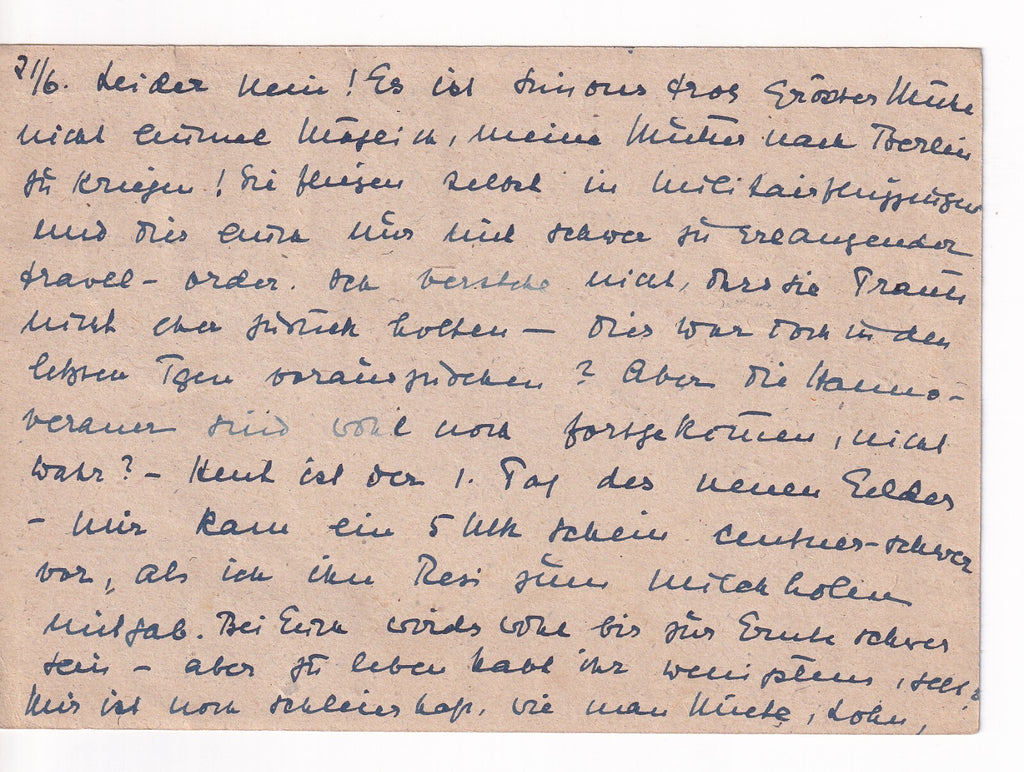 21/6. Leider nein! Es ist Simons trotz Grösster Mühe
nicht einmal möglich, meine Mutter nach Berlin
zu kriegen! Sie fliegen selbst in Militairflugzeugen
und dies auch nur mit schwer zu erlangender
travel-order. Ich verstehe nicht, dass sie Traute
nicht eher zurück holten - dies war doch in den
letzten Tgen vorauszusehen? Aber die Hanno-
veraner sind wohl noch fortgekommen, nicht
wahr? - Heut ist der 1. Tag des neuen Geldes
- mir kam ein 5 Mk schein centner-schwer
vor, als ich ihn Resi zum Milch holen
mitgab. Bei Euch wirds wohl bis zur Ernte schwer
sein - aber zu leben habt ihr wenigstens, gell?
Mir ist noch schleierhaft, wie man Miete, Lohn,